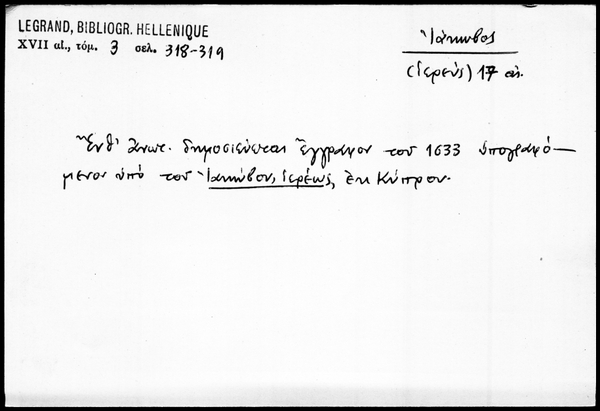 LEGRAND, BIBLIOGR. HELLENIQUE
XVII αἰ., τόμ. 3 σελ. 318-319
Ἰάκωβος
(ἱερεύς) 17 αἰ.
Ἔνθ' ἀνωτ. δημοσιεύεται ἔγγραφον του 1633 ὑπογραφό-
μενον ὑπό του Ἰακώβου, ἱερέως, ἐκ Κύπρου.